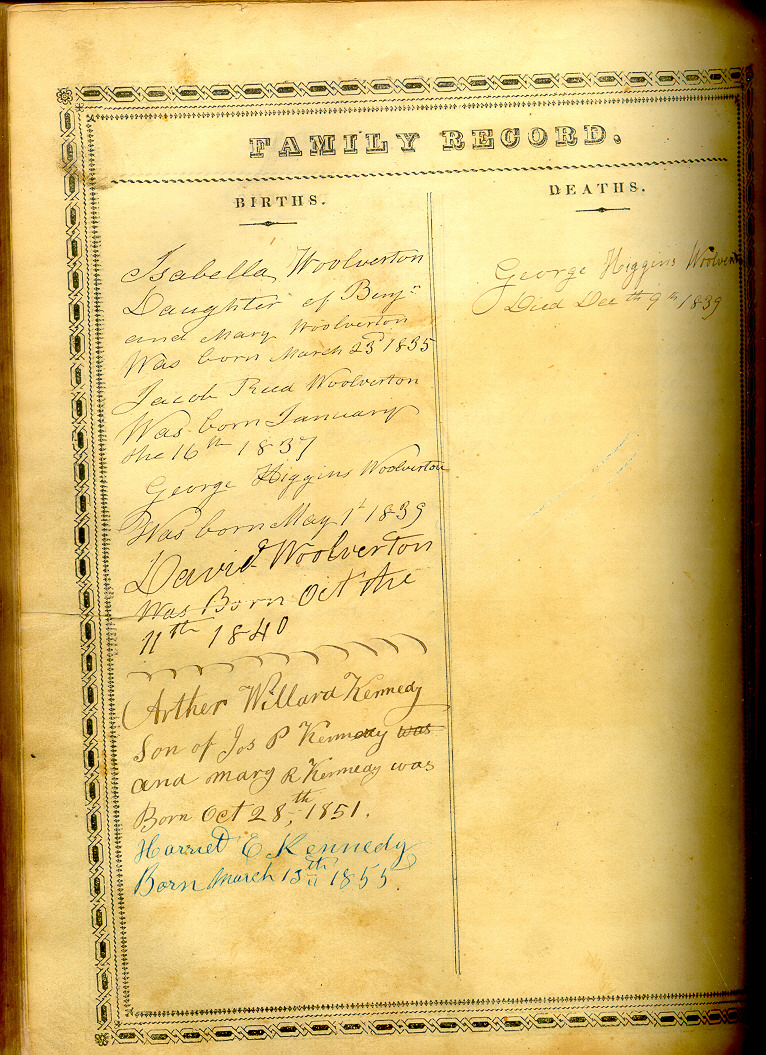 FAMILY RECORD.
BIRTHS.
Isabella Woolverton
Daughter of Benjn
and Mary Woolverton
Was born March 23d 1835
Jacob Reed Woolverton
Was born January
the 16th 1837
George Higgins Woolverton
Was born May 1t 1839
David Woolverton
Was Born Oct the
11th 1840
Arther Willard Kennedy
Son of Jos P Kennedy was
and Mary R Kennedy was
Born Oct 28th, 1851.
Harriet E Kennedy
Born March 13th 1855.
DEATHS.
George Higgins Woolverton
Died Dec th 9th 1839